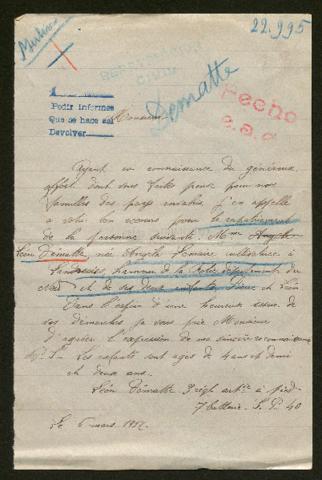 22.995
Pedir informes
Que se hace asi
Devolver
Demotte
Hecho
Monsieur
Ayant eu connaissance du généreux
effort dont vous faites preuve pour nos
familles des pays envahis, j'en appelle
à votre bon secours pour le rapatriement
de la personne suivante Mme
Léon Démotte, née Angèle Lemaire
Landrecies, département du
Nord et de ses deux enfants et Léon
Dans l'espoir d'une heureuse issue de
vos démarches je vous prie Monsieur
d'agréer l'expression de ma sincère reconnaissance
Les enfants sont agés de 4 ans et demi
et deux ans.
Léon Démotte 3 régt artie à pied
7 batterie. S. P. 40
Le 6 mars